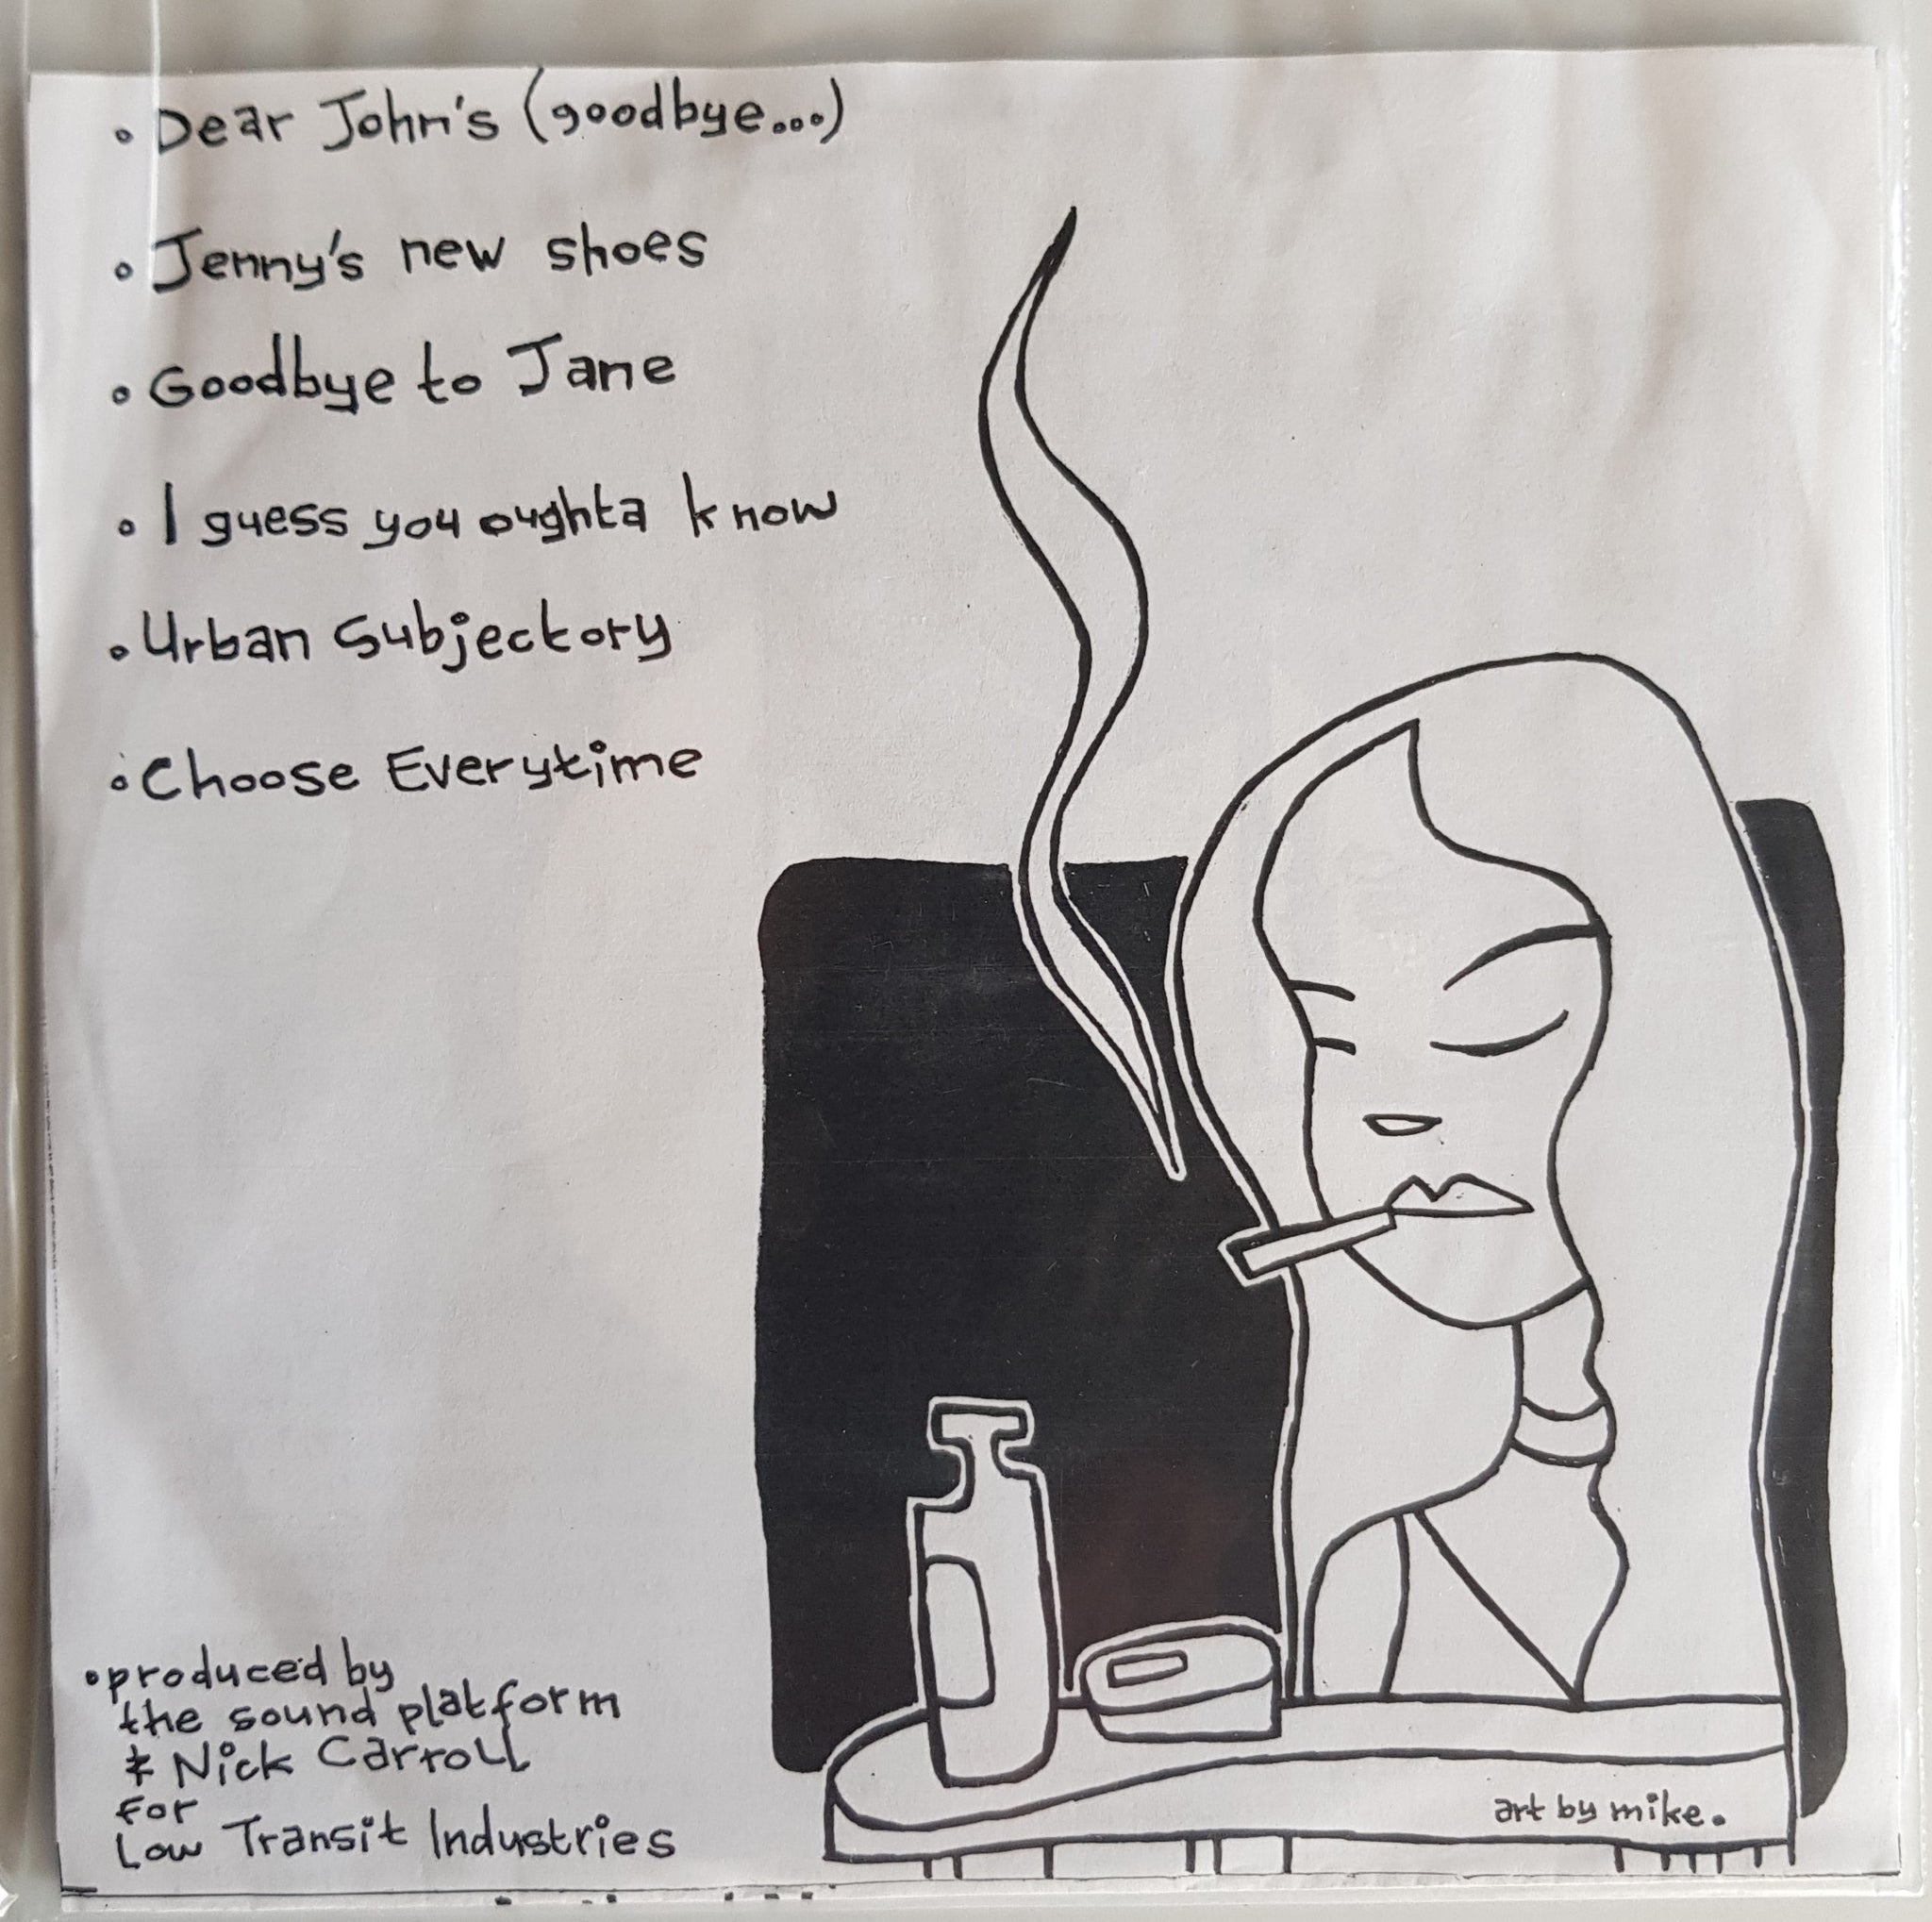 • Dear John's (goodbye...)
• Jenny's new shoes
• Goodbye to Jane
• I guess you oughta know
• Urban Subjectory
• Choose Everytime
• produced by
the sound platform
& Nick Carroll
for
Low Transit Industries
art by mike.